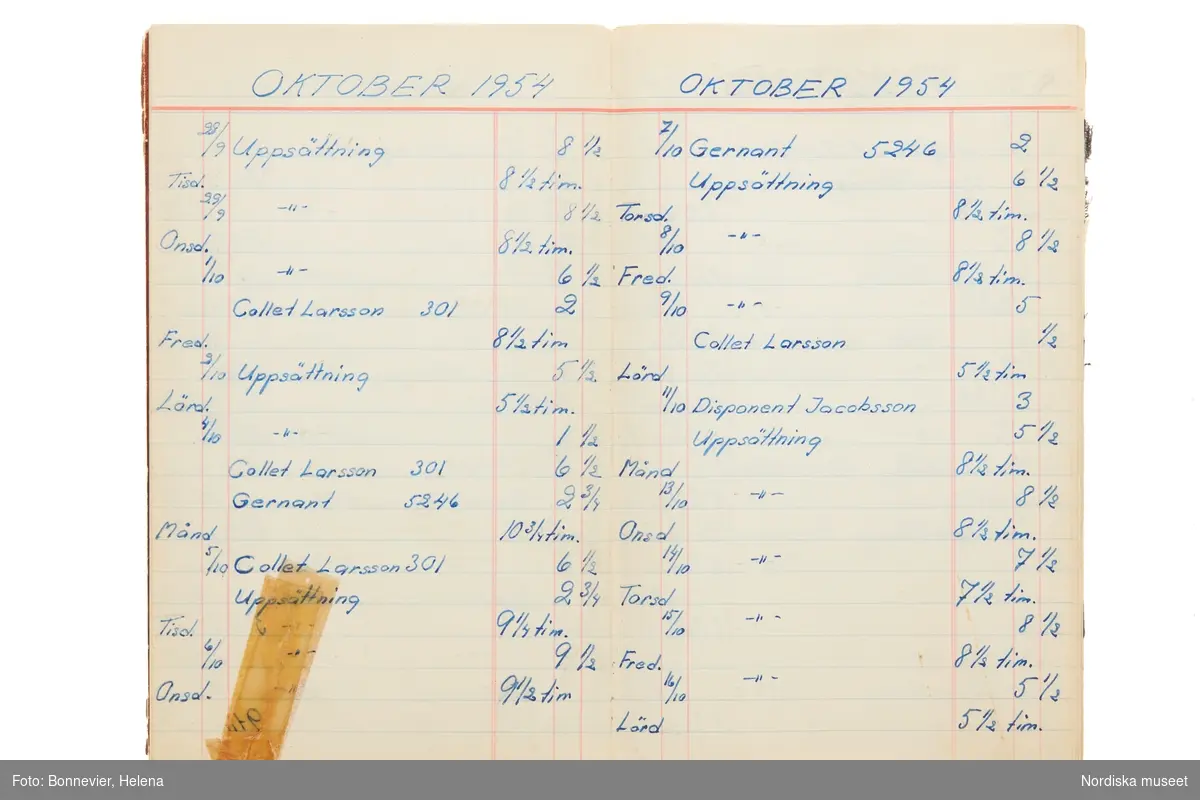 OKTOBER 1954
28/9 Uppsättning 8 1/2
Tisd. 8 1/2 tim.
29/9 -"- 8 1/2
Onsd. 8 1/2 tim.
1/10 -"- 6 1/2
Collet Larsson 301 2
Fred. 8 1/2 tim
2/10 Uppsättning 5 1/2
Lörd. 5 1/2 tim.
4/10 -"- 1 1/2
Collet Larsson 301 6 1/2
Gernant 5246 2 3/4
Månd 10 3/4 tim.
5/10 Collet Larsson 301 6 1/2
Uppsättning 2 3/4
Tisd. -"- 9 1/4 tim.
6/10 -"- 9 1/2
Onsd. -"- 9 1/2 tim
OKTOBER 1954
7/10 Gernant 5246 2
Uppsättning 6 1/2
Torsd. 8 1/2 tim.
8/10 -"- 8 1/2
Fred. 8 1/2 tim.
9/10 -"- 5
Collet Larsson 1/2
Lörd 5 1/2 tim
11/10 Disponent Jacobsson 3
Uppsättning 5 1/2
Månd 8 1/2 tim.
13/10 -"- 8 1/2
Onsd 8 1/2 tim.
14/10 -"- 7 1/2
Torsd 7 1/2 tim.
15/10 -"- 8 1/2
Fred. 8 1/2 tim.
16/10 -"- 5 1/2
Lörd 5 1/2 tim.
Foto: Bonnevier, Helena
Nordiska museet